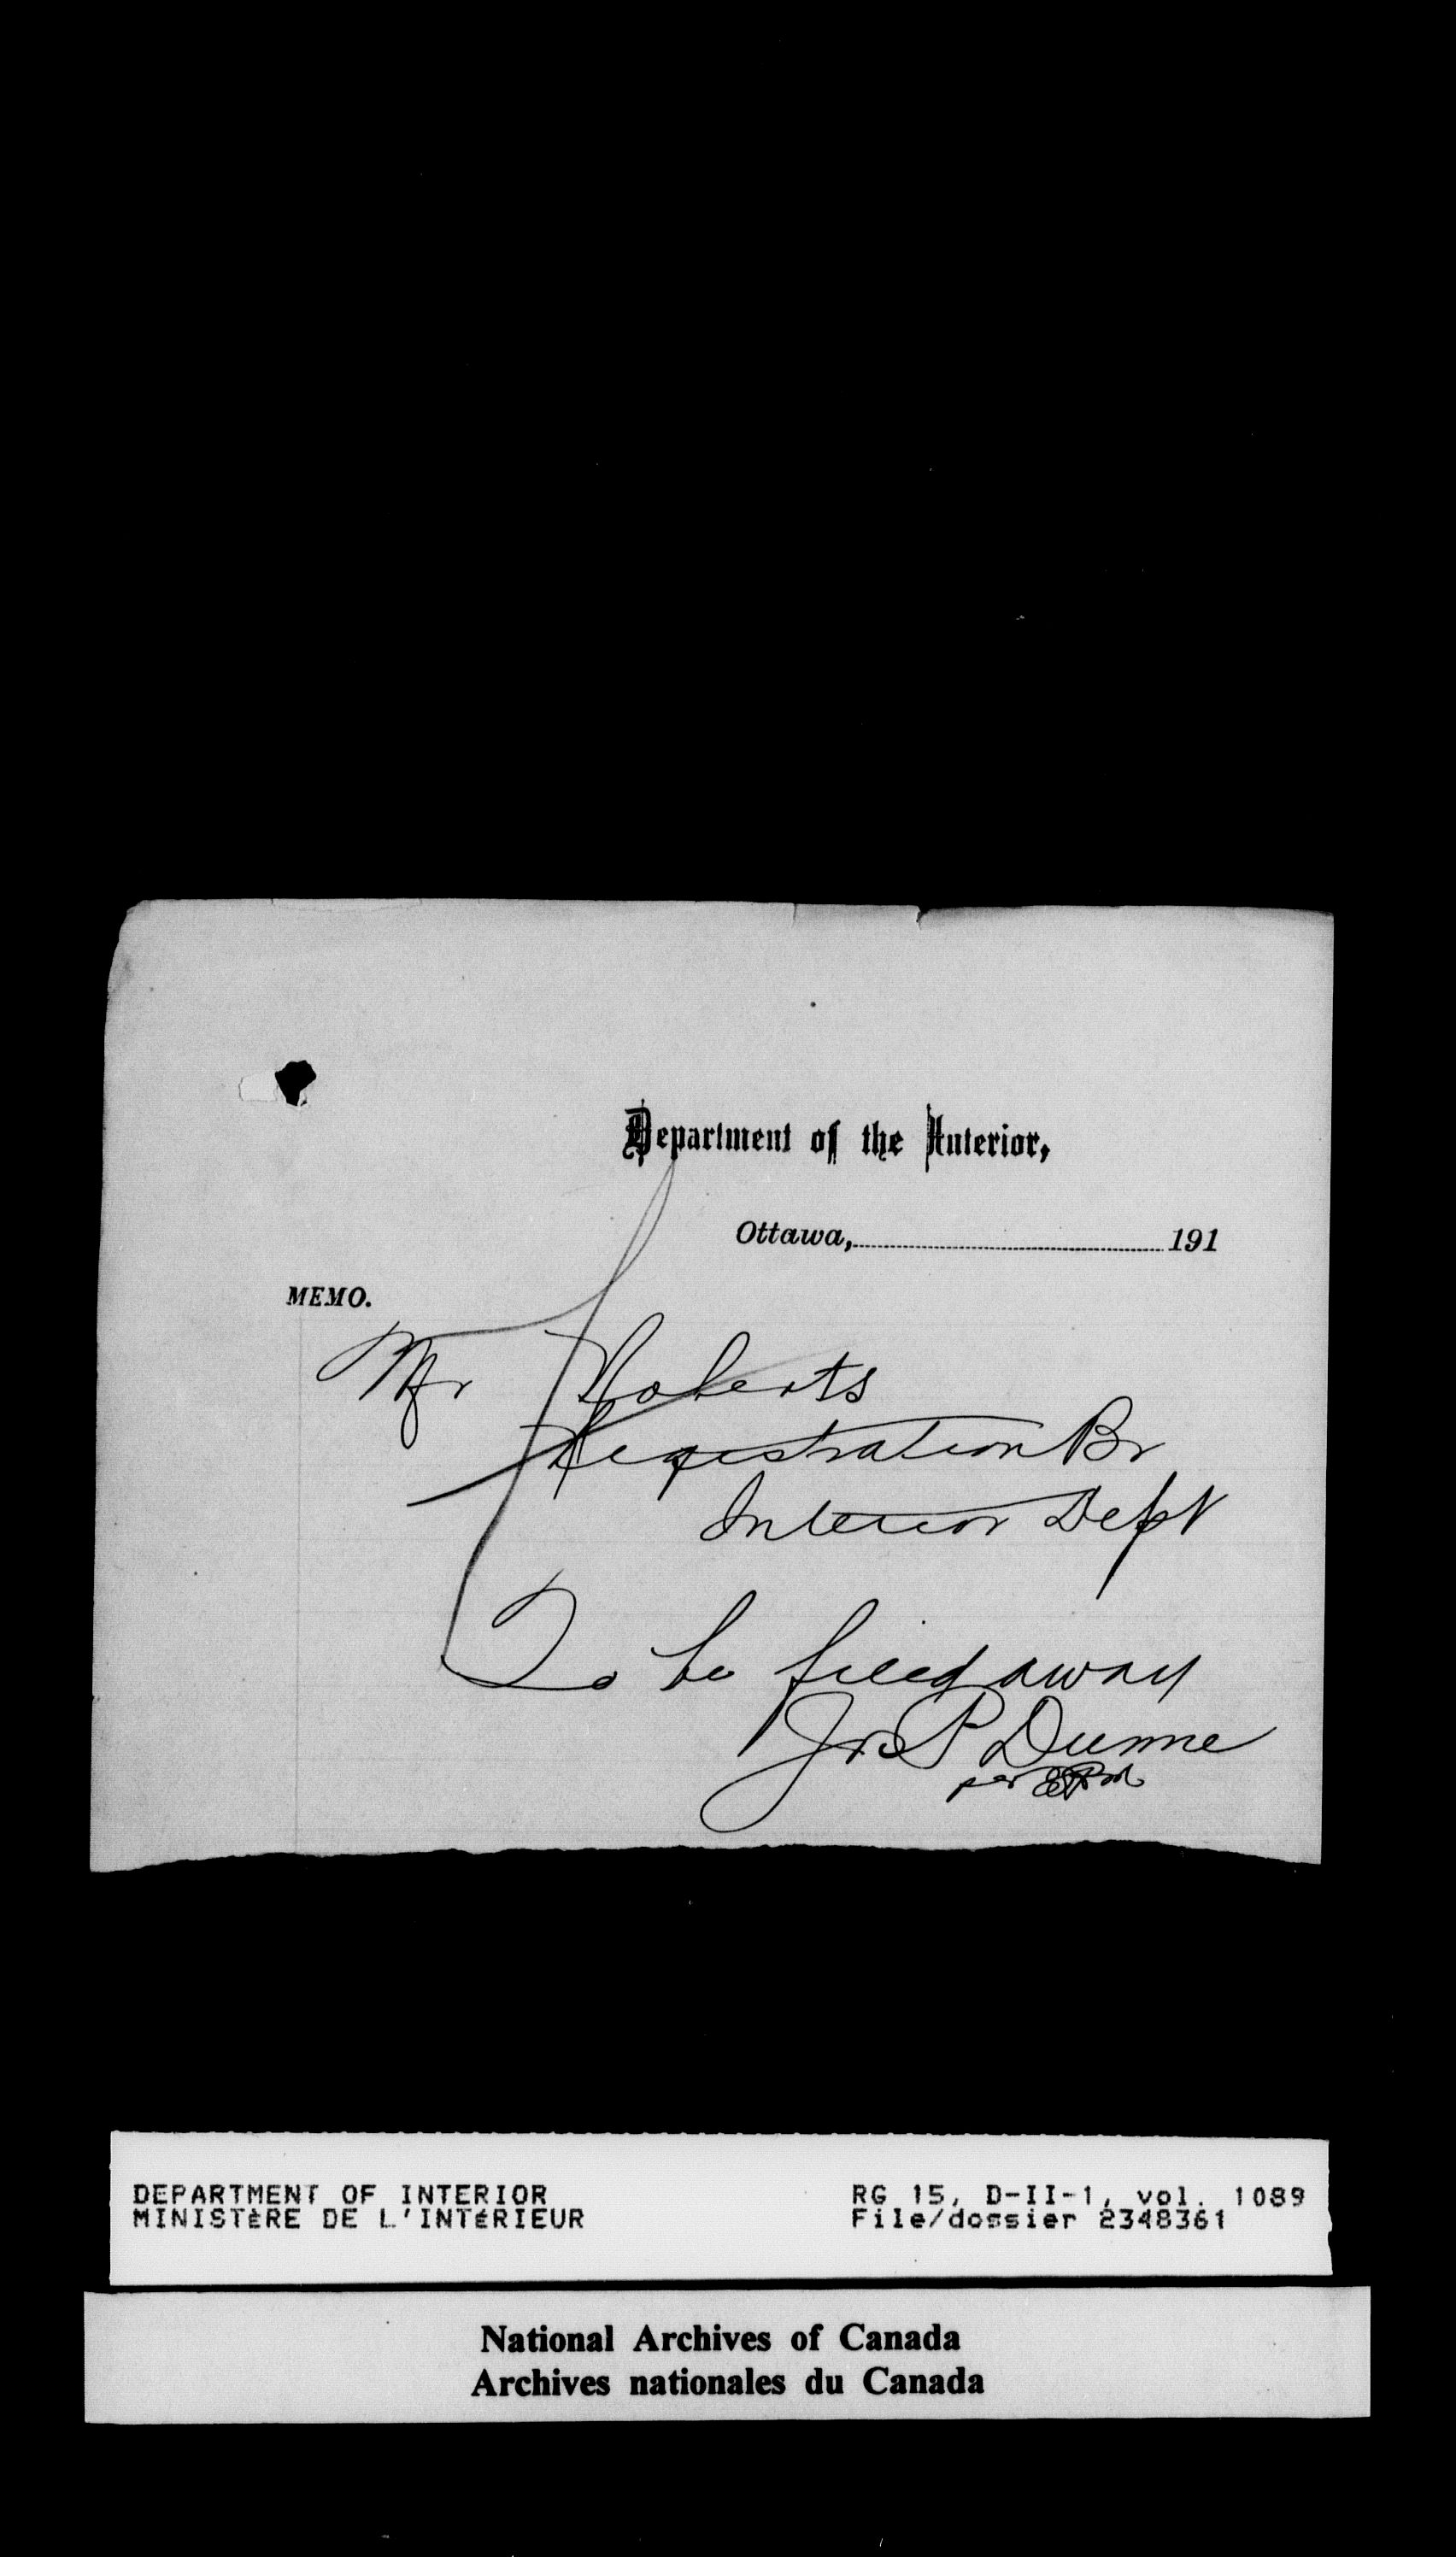 Department of the Interior,
Ottawa, 191
MEMO.
Mr Roberts
Registration Br
Interior Dept
To be filed away
P Dunne
per
DEPARTMENT OF INTERIOR
MINISTÈRE DE L'INTÉRIEUR
RG 15, D-II-1, vol. 1089
File/dossier 2348361
National Archives of Canada
Archives nationales du Canada